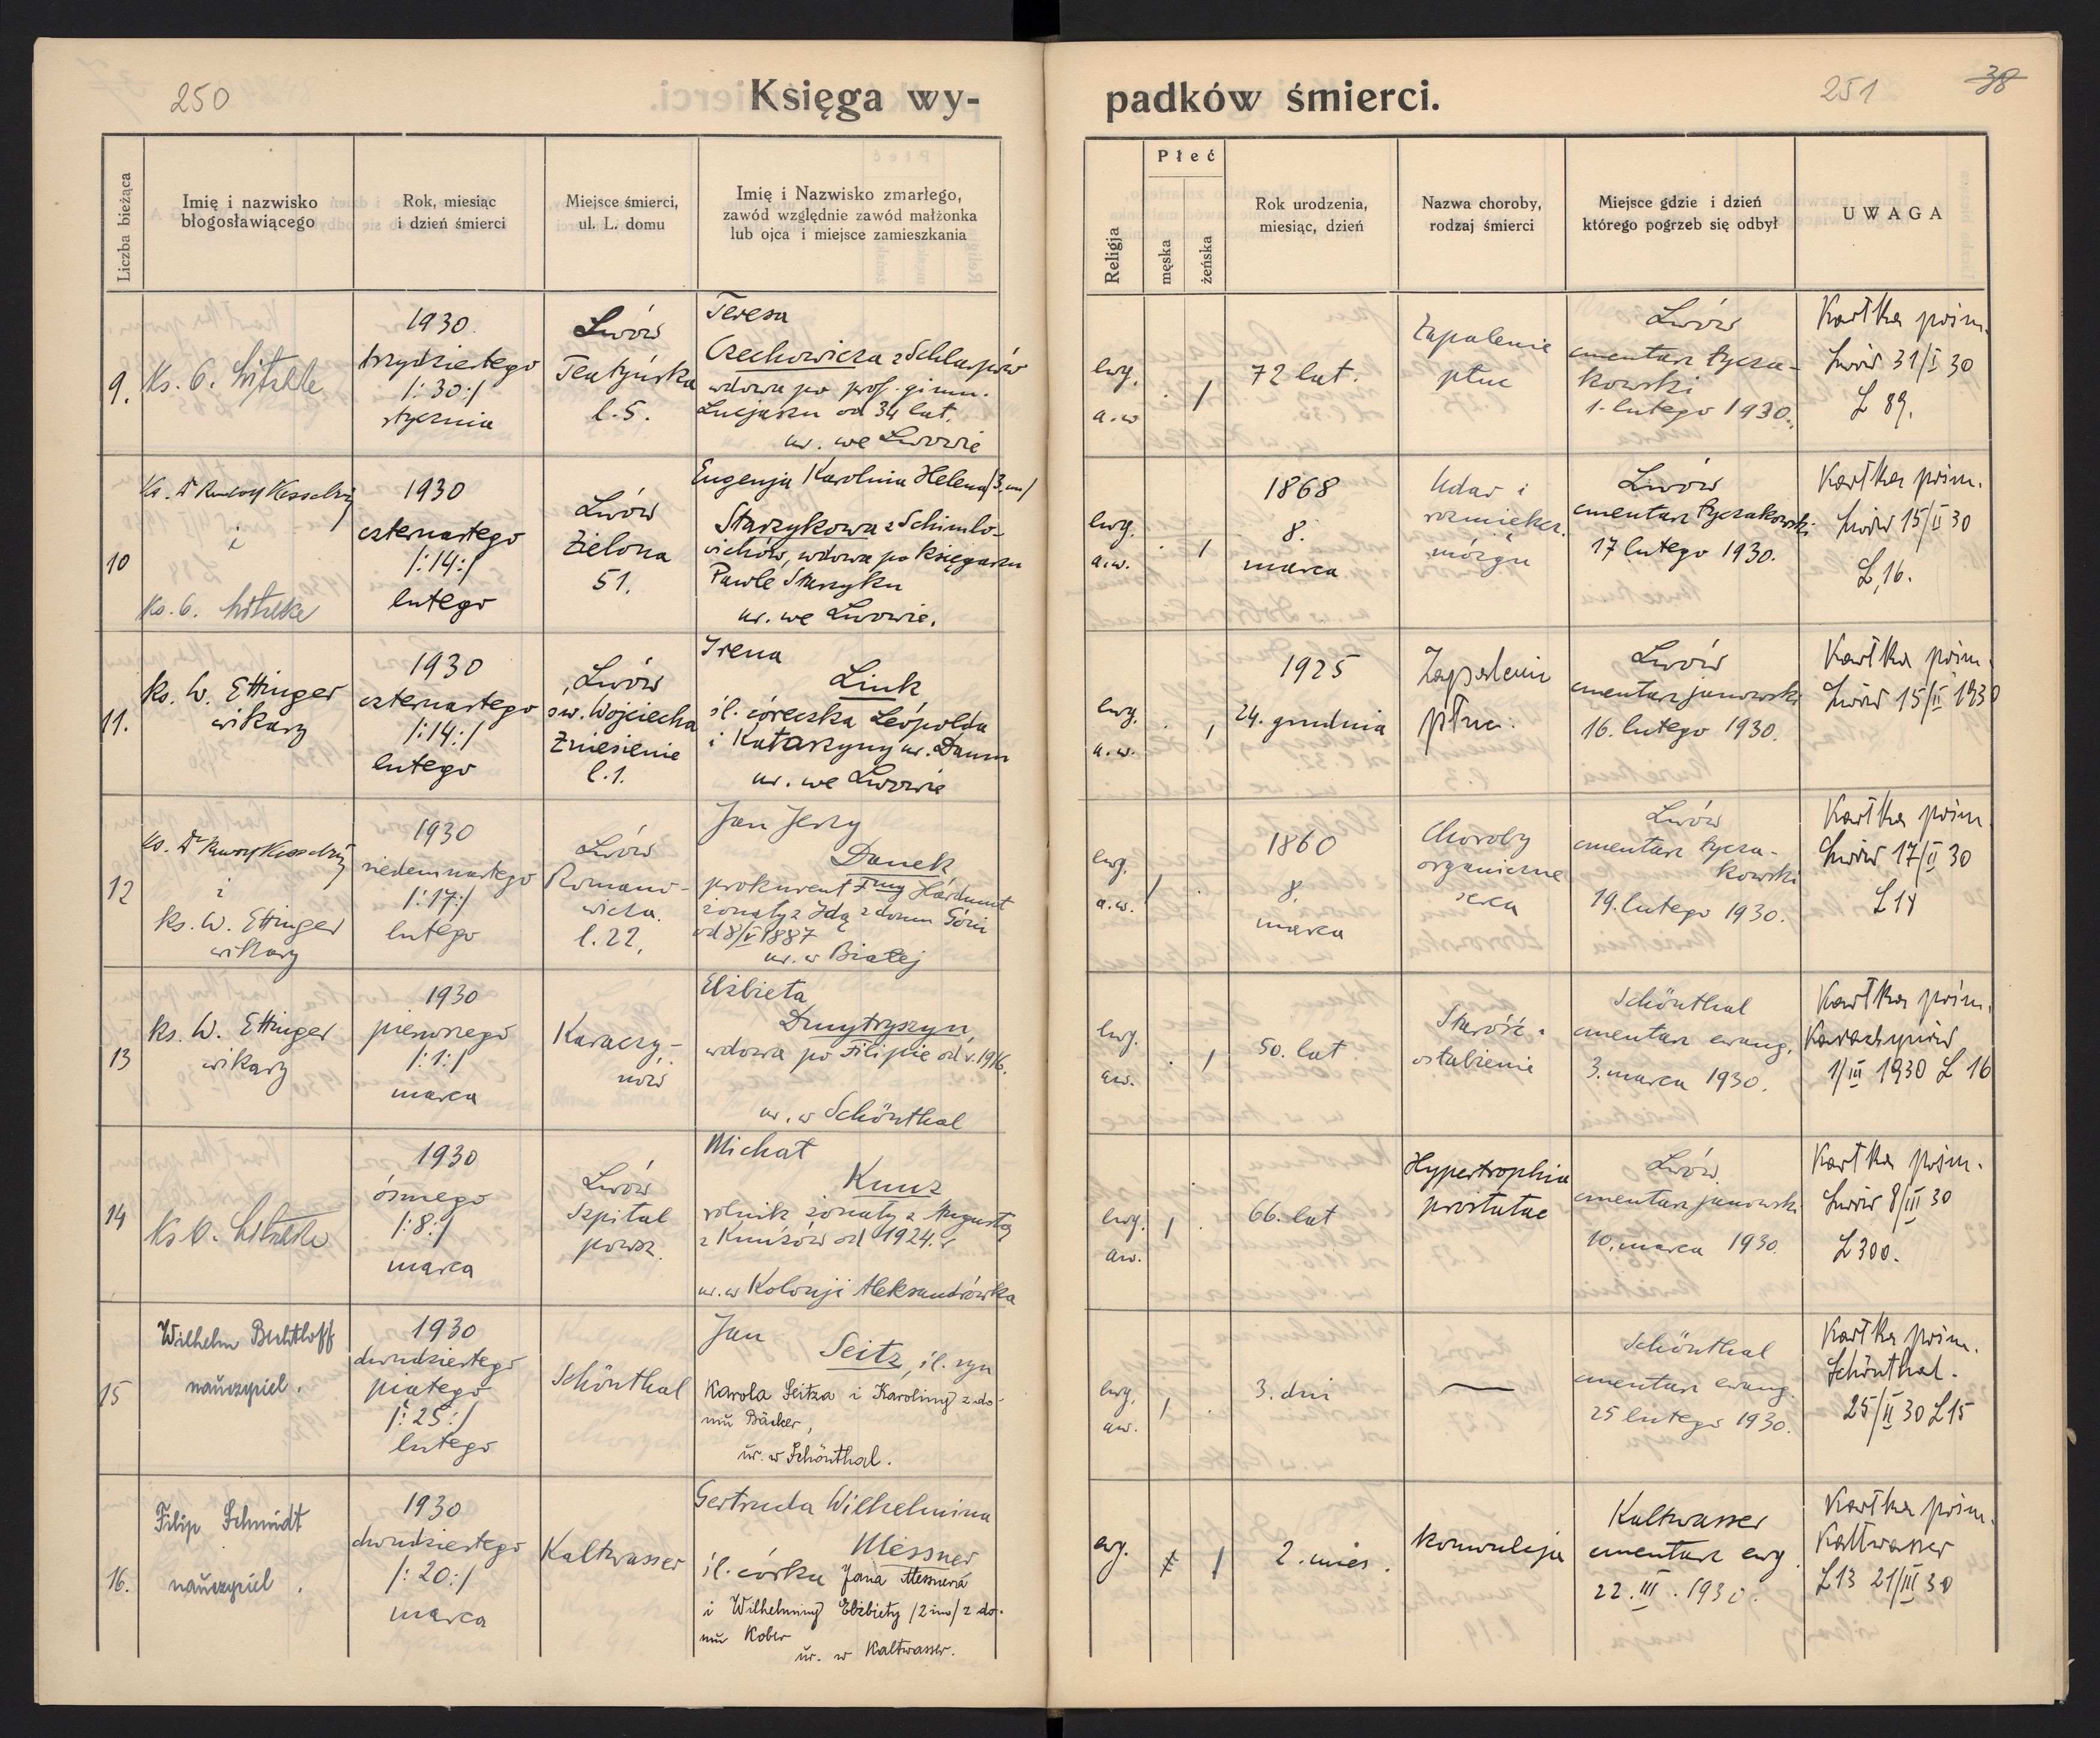 250
Księga wy-
Liczba bieżąca
Imię i nazwisko
błogosławiącego
Rok, miesiąc
i dzień śmierci
Miejsce śmierci,
ul. L. domu
Imię i Nazwisko zmarłego,
zawód względnie zawód małżonka
lub ojca i miejsce zamieszkania
9.
Ks. O.
1930.
trzydziestego
/:30:/
stycznia
Lwów
Teatyńska
l. 5.
Teresa
Czechowicza z
wdowa po prof. gimn.
Lucjanu od 34 lat.
ur. we Lwowie
10
Ks. Dr Kesselring
i
Ks. O.
1930
czternastego
/:14:/
lutego
Lwów
Zielona
51.
Eugenja Karolina Helena /3. im/
Starzykowa z Schimlo-
wichów, wdowa po księgarzu
Pawle Starzyku
ur. we Lwowie.
11.
Ks. W. Ettinger
wikary
1930
czternastego
/:14:/
lutego
Lwów
św. Wojciecha
Zniesienie
l. 1.
Irena
Link
śl. córeczka Leopolda
i Katarzyny ur. Daum
ur. we Lwowie
12
Ks. Dr Kesselring
i
Ks. W. Ettinger
wikary
1930
siedemnastego
/:17:/
lutego
Lwów
Romano-
wicza.
l. 22.
Jan Jerzy
Danek
prokurent Fmy Hardtmut
żonaty z Idą z domu
od 8/V 1887
ur. w Białej
13
Ks. W. Ettinger
wikary
1930
pierwszego
/:1:/
marca
Karaczy-
nów
Elżbieta
Dmytryszyn
wdowa po Filipie od r. 1916.
ur. w Schönthal
14
Ks O.
1930
ósmego
/:8:/
marca
Lwów
Szpital
powsz.
Michał
Kunz
rolnik żonaty z Augustą
z Kunzów od 1924. r
ur. w Kolonji Aleksandrówka
15
Wilhelm Bechtloff
nauczyciel.
1930
dwudziestego
piątego
/:25:/
lutego
Schönthal
Jan
Seitz, śl. syn
Karola Seitza i Karoliny z do-
mu Bäcker,
ur. w Schönthal.
16.
Filip Schmidt
nauczyciel.
1930
dwudziestego
/:20:/
marca
Kaltwasser
Gertruda Wilhelmina
Messner
śl. córka Jana Messnera
i Wilhelminy Elżbiety /2 im/ z do-
mu Kober
ur. w Kaltwasser.
padków śmierci.
251
38
Religja
Płeć
męska
żeńska
Rok urodzenia,
miesiąc, dzień
Nazwa choroby,
rodzaj śmierci
Miejsce gdzie i dzień
którego pogrzeb się odbył
UWAGA
ewg.
a.w
. /
72 lat.
Zapalenie
płuc
Lwów
cmentarz łycza-
kowski
1. lutego 1930.
Kartka pośm.
Lwów 31/I 30
L 89.
ewg.
a.w.
. /
1868
8.
marca
Udar i
rozmiękcz.
mózgu
Lwów
cmentarz łyczakowski
17 lutego 1930.
Kartka pośm.
Lwów 15/II 30
L 16.
ewg.
a.w.
. /
1925
24. grudnia
Zapalenie
płuc.
Lwów
cmentarz janowski
16. lutego 1930.
Kartka pośm.
Lwów 15/II 1930
ewg.
a.w.
/ .
1860
8.
marca
Choroby
organiczne
serca
Lwów
cmentarz łycza-
kowski
19. lutego 1930.
Kartka pośm.
Lwów 17/II 30
ewg.
aw.
. /
50. lat
Starość.
osłabienie
Schönthal
cmentarz ewang.
3. marca 1930.
Kartka pośm.
Karaczynów
1/III 1930 L 16
ewg.
aw.
/ .
66. lat
Hypertrophia
prostatae
Lwów
cmentarz janowski
10. marca 1930.
Kartka pośm.
Lwów 8/III 30
L 300.
ewg.
aw.
/ .
3. dni
—
Schönthal
cmentarz ewang.
25 lutego 1930.
Kartka pośm.
Schönthal.
25/II 30 L 15
ewg.
/
2. mies.
konwulsja
Kaltwasser
cmentarz ewg.
22. III. 1930.
Kartka pośm.
Kaltwasser
L 13 21/III 30